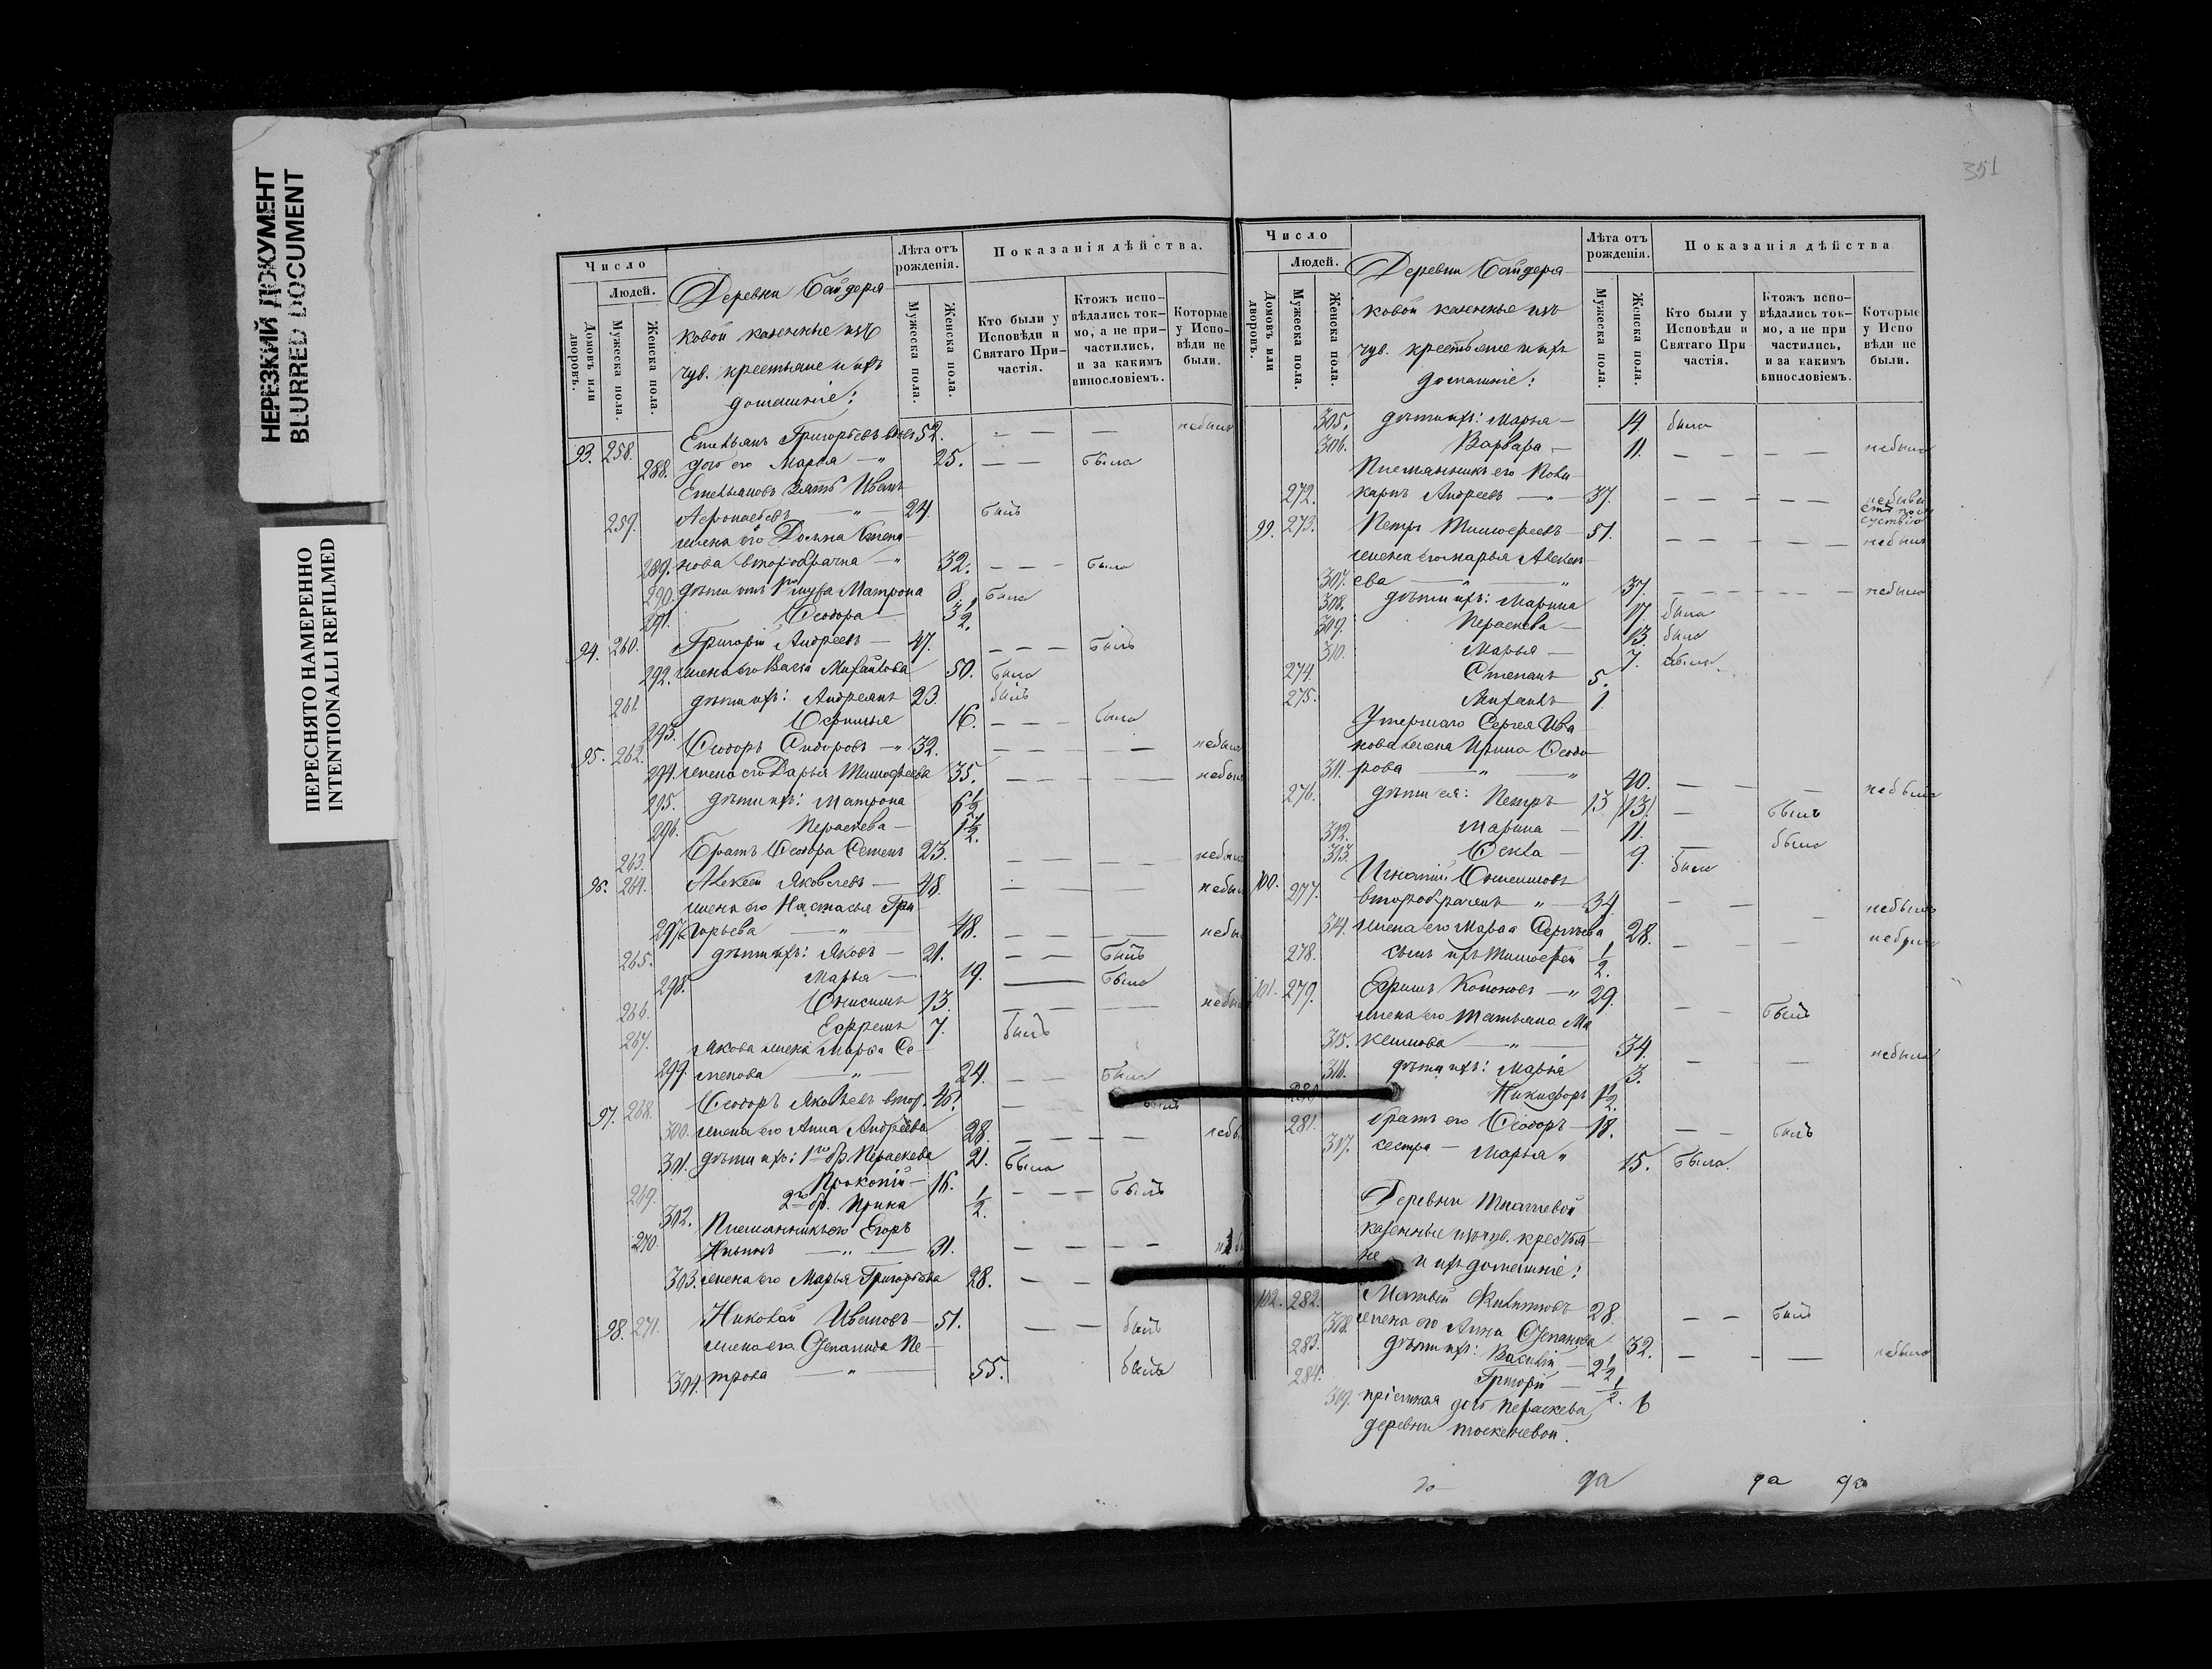 НЕРЕЗКИЙ ДОКУМЕНТ
BLURRED DOCUMENT
ПЕРЕСНЯТО НАМЕРЕННО
INTENTIONALLI REFILMED
Число
Людей.
Домовъ или дворовъ.
Мужеска пола.
Женска пола.
Деревни Байдеря
ковой казенные изъ
чув. крестьяне и ихъ
домашніе:
Лѣта отъ рожденія.
Мужеска пола.
Женска пола.
Показанія дѣйства.
Кто были у Исповѣди и Святаго При-частія.
Ктожъ испо-вѣдались ток-мо, а не при-частились, и за какимъ винословіемъ.
Которые у Испо-вѣди не были.
93. 258. Емельянъ Григорьевъ 52. — — — небылъ
288. дочь его Марья — " 25. — — была
Емельяновъ зять Иванъ
259. — " — 24. былъ
жена его Степа-
289. нова второбрачна — " 32. — — — была
290. дѣти отъ 1го мужа Матрона 8. была
291. Ѳеодора — 3 1/2.
94. 260. Григорій Андреевъ — 47. — — — былъ
292. жена его Михайлова 50. была
261. дѣти ихъ: Андреянъ 23. былъ
293. 16. — — — была
95. 262. Ѳеодоръ Сидоровъ — " 32. — — — — — небылъ
294. жена его Дарья Тимоѳеева 35. — — — — небыла
295. дѣти ихъ: Матрона 6 1/2
296. Пераскева — 1 1/2.
263. Братъ Ѳеодора Семенъ 23. — — — небылъ
96. 264. Алексѣй Яковлевъ — 48. — — — небылъ
жена его Настасья Гри-
297. горьева — " — 48. — — — — небыла
265. дѣти ихъ: Яковъ — 21. — — былъ
298. Марья — 19. — была
266. Онисимъ 13. — — — небылъ
267. Ефремъ 7. былъ
Якова жена Марья Се-
299. менова — " — 24. — — была
97. 268. Ѳеодоръ Яковлевъ втор. 46. — былъ
300. жена его Анна Андреева 28. — — — — небыла
301. дѣти ихъ: 1го бр. Пераскева 21. была
269. Прокопій — 16. — — — былъ
302. 2го бр. Ирина 1/2.
Племянникъ его Егоръ
270. — " — 31. — — — —
303. жена его Марья Григорьева 28. — —
98. 271. Николай Ивановъ — 51. — — былъ
жена его Степанида Пе-
304. трова — " — 55. была
351
Число
Людей.
Домовъ или дворовъ.
Мужеска пола.
Женска пола.
Деревни Байдеря-
ковой казенные изъ
чув. крестьяне и ихъ
домашніе:
Лѣта отъ рожденія.
Мужеска пола.
Женска пола.
Показанія дѣйства
Кто были у Исповѣди и Святаго При частія.
Ктожъ испо-вѣдались ток-мо, а не при частились, и за какимъ винословіемъ.
Которые у Испо вѣди не были.
305. дѣти ихъ: Марья — 14. была
306. Варвара — 11. — — — — небыла
Племянникъ его Поли
272. карпъ Андреевъ — " — 37. — — — — —
99. 273. Петръ Тимоѳеевъ — 51. — — — — — небылъ
жена его Марья Алексѣ-
307. ева — " — " 37. — — — — — — небыла
308. дѣти ихъ: Марина 17. была
309. Пераскева — 13. была
310. Марья — 7. была
274. Степанъ 5.
275. Михаилъ 1.
Умершаго Сергея Ива
нова жена Ирина Ѳеодо-
311. рова — " — " 40. — — — небыла
276. дѣти ея: Петръ — 13 (13) — былъ
312. Марина — 11. — была
313. Ѳекла — 9. была
100. Игнатій Онисимовъ
277. второбраченъ — " — 34. — — — небылъ
314. жена его Марья Сергѣева 28. — — небыла
278. сынъ ихъ Тимоѳей 1/2.
101. 279. Ефимъ Кононовъ — " 29. — — былъ
жена его Татьяна Ма
315. ксимова — " — 34. — — небыла
316. дѣти ихъ: Марья 3.
280. Никифоръ 1 1/2.
281. братъ его Ѳеодоръ — 18. — — былъ
317. сестра — Марья " 15. была.
Деревни
казенные изъ чув. крестья-
не и ихъ домашніе:
102. 282. Матвей Филиповъ 28. — — былъ
318. жена его Анна Степанова 32. — — — небыла
283. дѣти ихъ: Василій — 2 1/2
284. Григорій — 1/2.
319. пріемная дочь Пераскева, 6
деревни
до да да да